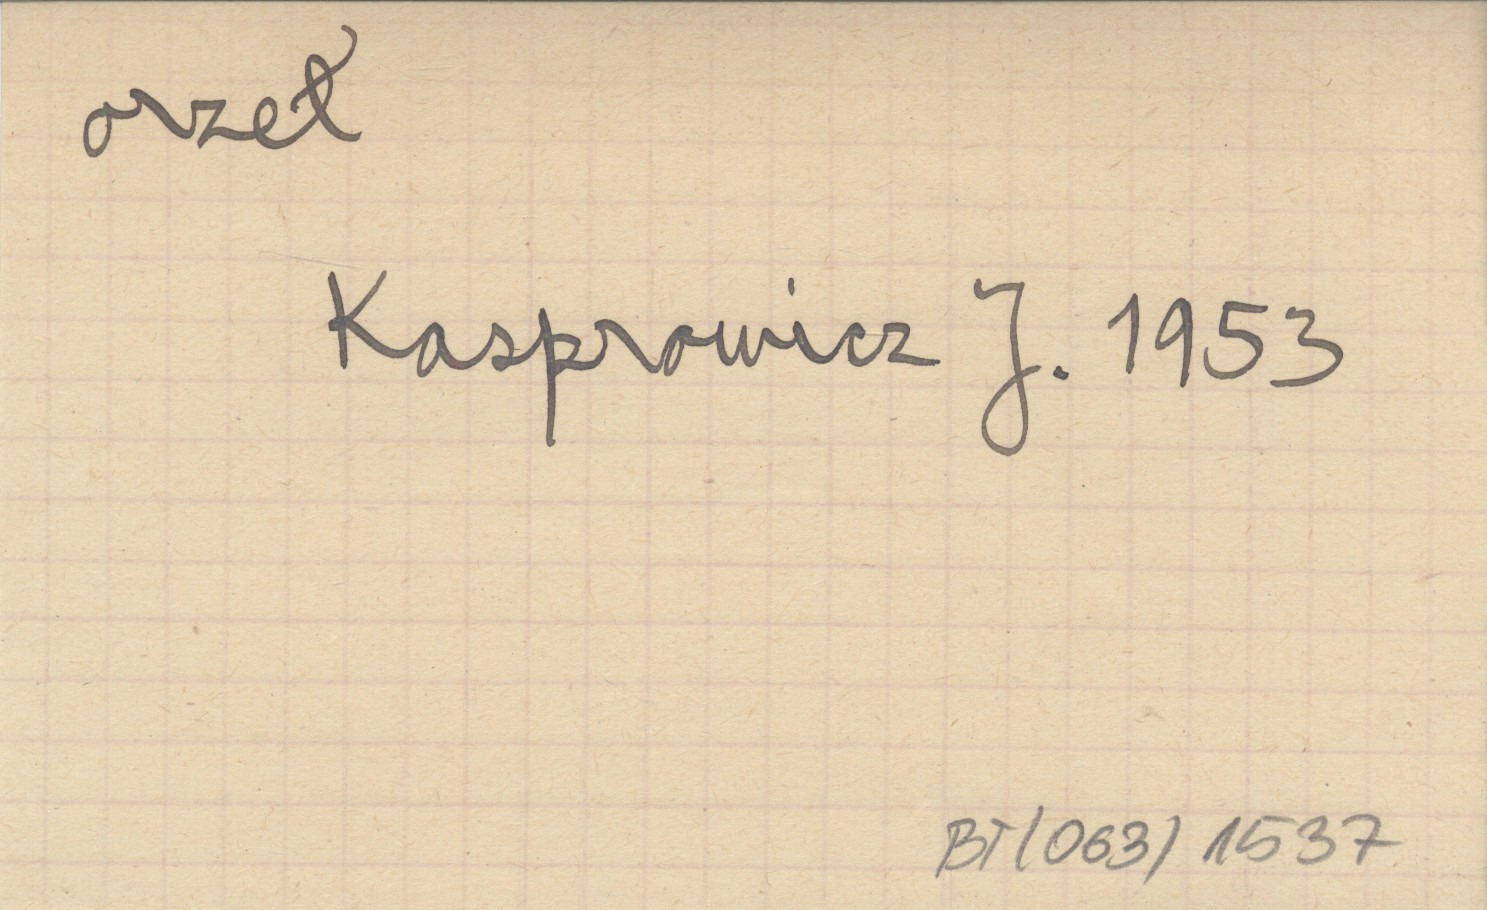 orzeł
Kasprowicz J. 1953
BT(063) 1537